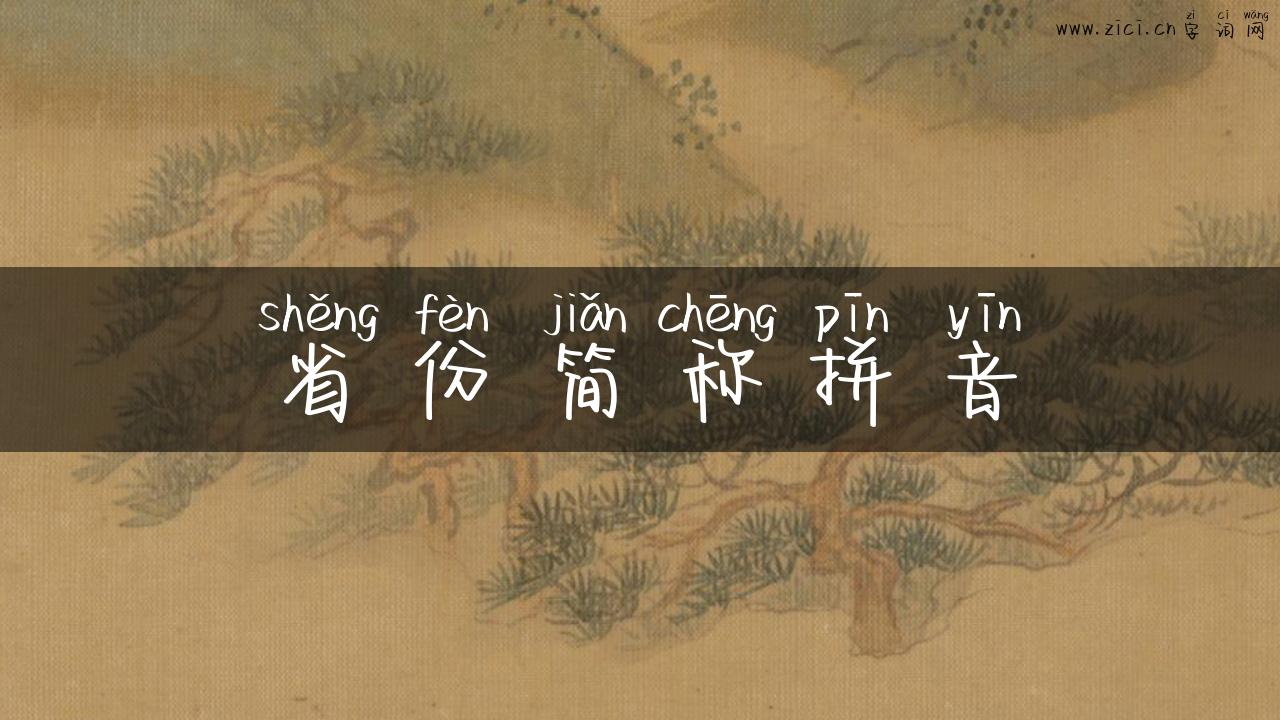 zì cí wǎng
www.zīcī.cn 字词网
shěng fèn jiǎn chēng pīn yīn
省份简称拼音